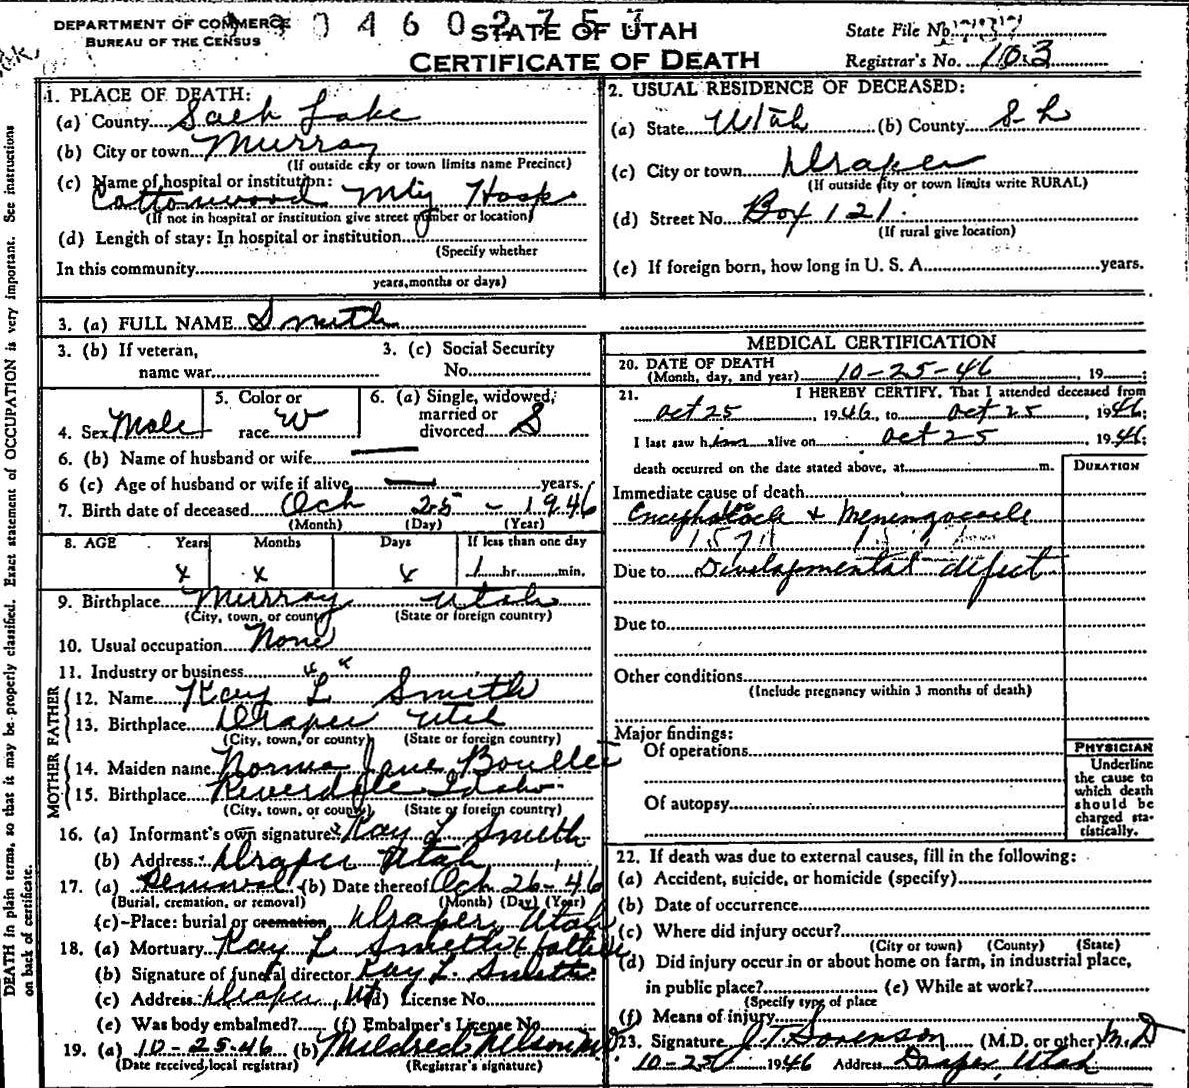 DEPARTMENT OF COMMERCE
BUREAU OF THE CENSUS
0 4 6 0 2 7 5
STATE OF UTAH
CERTIFICATE OF DEATH
State File No.
Registrar's No. 103
DEATH in plain terms, so that it may be properly classified. Exact statement of OCCUPATION is very important. See instructions
on back of certificate.
1. PLACE OF DEATH:
(a) County Salt Lake
(b) City or town Murray
(If outside city or town limits name Precinct)
(c) Name of hospital or institution:
Cottonwood Mty Hosp
(If not in hospital or institution give street number or location)
(d) Length of stay: In hospital or institution
(Specify whether
In this community
years, months or days)
2. USUAL RESIDENCE OF DECEASED:
(a) State Utah (b) County S L
(c) City or town Draper
(If outside city or town limits write RURAL)
(d) Street No. Box 121
(If rural give location)
(e) If foreign born, how long in U. S. A. years.
3. (a) FULL NAME Smith
3. (b) If veteran,
name war
3. (c) Social Security
No.
4. Sex Male
5. Color or
race W
6. (a) Single, widowed,
married or
divorced S
6. (b) Name of husband or wife —
6 (c) Age of husband or wife if alive — years.
7. Birth date of deceased Oct 25 - 1946
(Month) (Day) (Year)
8. AGE Years Months Days If less than one day
x x x 1 hr. min.
9. Birthplace Murray Utah
(City, town, or county) (State or foreign country)
10. Usual occupation None
11. Industry or business
FATHER
12. Name Kay L Smith
13. Birthplace Draper Utah
(City, town, or county) (State or foreign country)
MOTHER
14. Maiden name Norma Jane
15. Birthplace Riverdale Idaho
(City, town, or county) (State or foreign country)
16. (a) Informant's own signature Kay L Smith
(b) Address Draper Utah
17. (a) Removal (b) Date thereof Oct 26-46
(Burial, cremation, or removal) (Month) (Day) (Year)
(c) Place: burial or cremation Draper, Utah
18. (a) Mortuary Kay L Smith father
(b) Signature of funeral director Kay L. Smith
(c) Address Draper, Ut (d) License No.
(e) Was body embalmed? (f) Embalmer's License No.
19. (a) 10-25-46 (b) Mildred Nelson
(Date received, local registrar) (Registrar's signature)
MEDICAL CERTIFICATION
20. DATE OF DEATH
(Month, day, and year) 10-25-46, 19
21. I HEREBY CERTIFY, That I attended deceased from
Oct 25, 1946, to Oct 25, 1946;
I last saw him alive on Oct 25, 1946;
death occurred on the date stated above, at m.
DURATION
Immediate cause of death
Encephalocele + Meningocele
157
Due to Developmental defect
Due to
Other conditions
(Include pregnancy within 3 months of death)
Major findings:
Of operations
Of autopsy
PHYSICIAN
Underline
the cause to
which death
should be
charged sta-
tistically.
22. If death was due to external causes, fill in the following:
(a) Accident, suicide, or homicide (specify)
(b) Date of occurrence
(c) Where did injury occur?
(City or town) (County) (State)
(d) Did injury occur in or about home on farm, in industrial place,
in public place? (e) While at work?
(Specify type of place
(f) Means of injury
23. Signature J. T. Sorenson (M.D. or other) M.D
10-25 1946 Address Draper, Utah